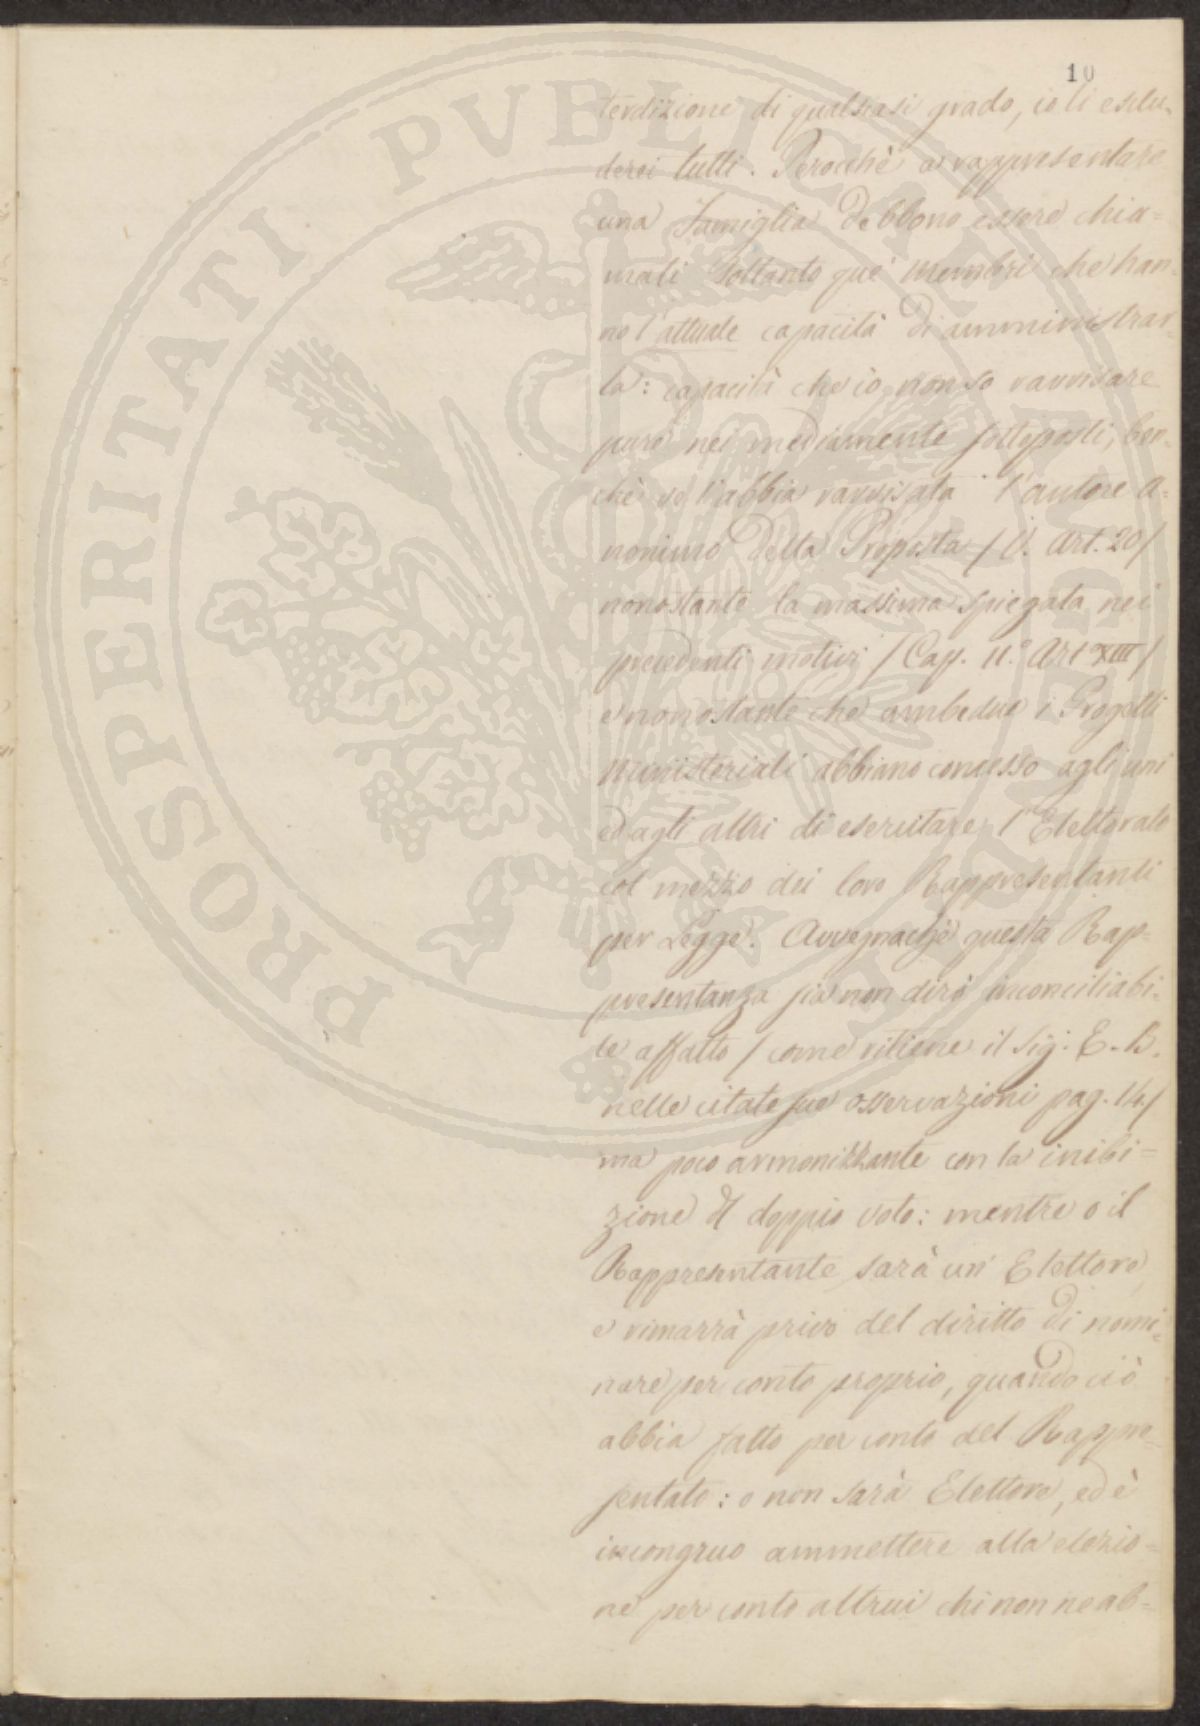 10
PROSPERITATI PVBLICAE
terdizione di qualsiasi grado, io li esclu-
derei tutti. Perocchè a rappresentare
una Famiglia debbono essere chia=
mati soltanto que' membri che han-
no l'attuale capacità di amministrar-
la: capacità che io non so ravvisare
pure nei mediamente sottoposti, ben-
chè ve l'abbia ravvisata l'autore a-
nonimo della Proposta /V. Art. 20/
nonostante la massima spiegata nei
precedenti motivi /Cap. II.° Art XIII/
e nonostante che ambedue i Progetti
Ministeriali abbiano concesso agli uni
ed agli altri di esercitare l'Elettorato
col mezzo dei loro Rappresentanti
per Legge. Avvegnachè questa Rap-
presentanza sia non dirò inconciliabi-
le affatto /come ritiene il Sig: E. B.
nelle citate sue osservazioni pag. 14/
ma poco armonizzante con la inibi=
zione del doppio voto: mentre o il
Rappresentante sarà un' Elettore,
e rimarrà privo del diritto di nomi-
nare per conto proprio, quando ciò
abbia fatto per conto del Rappre-
sentato: o non sarà Elettore, ed è
incongruo ammettere alla elezio=
ne per conto altrui chi non ne ab=